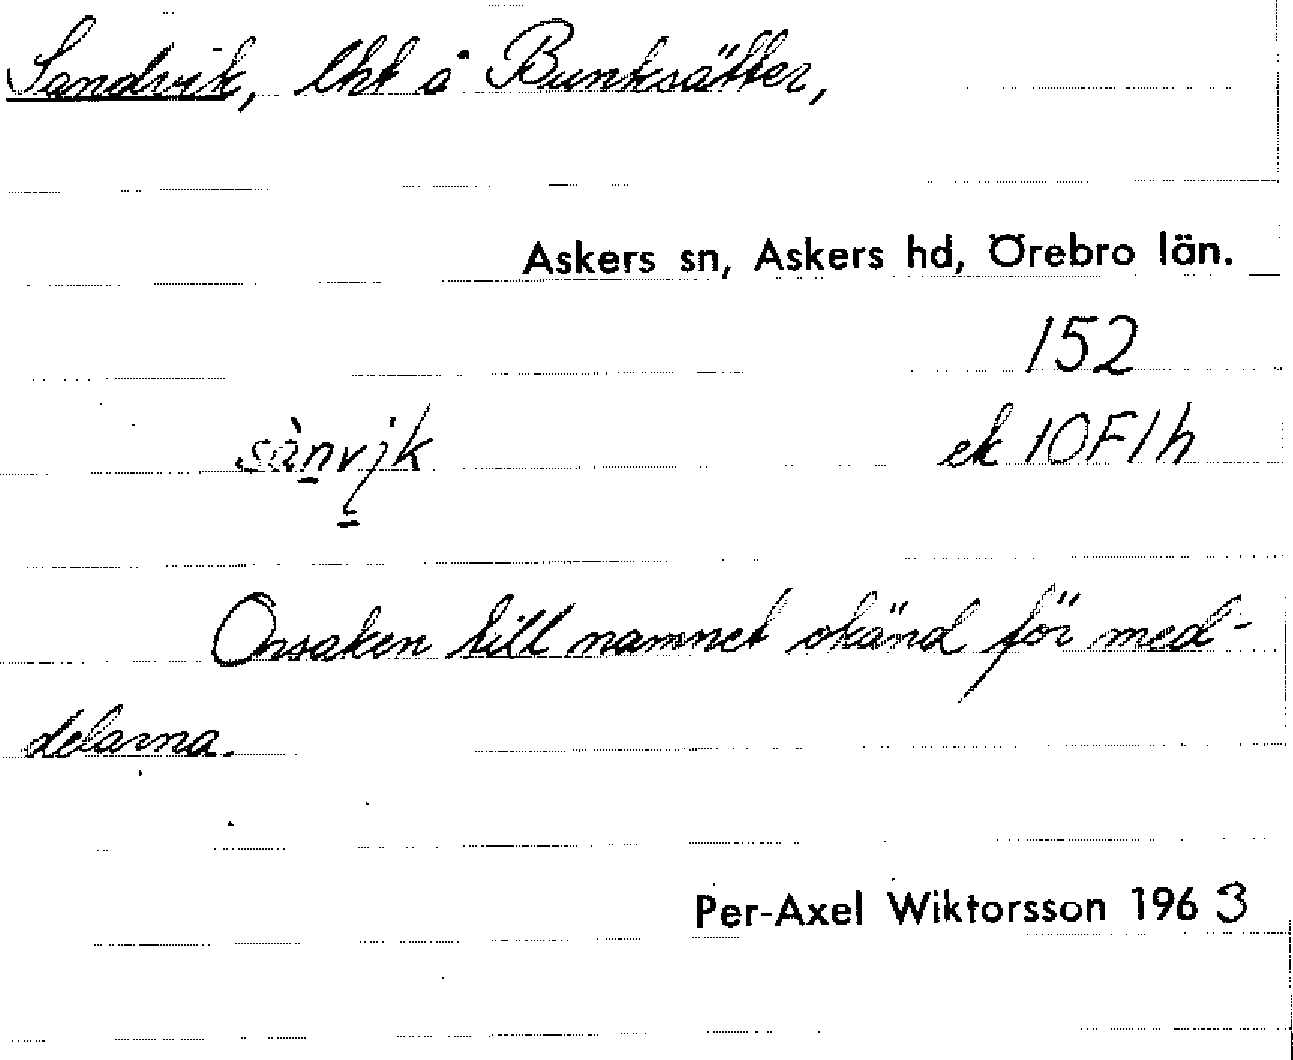 Sandvik, lht å Bunksätter,
Askers sn, Askers hd, Örebro län.
152
sànvik ek 10F1h
Orsaken till namnet okänd för med-
delarna.
Per-Axel Wiktorsson 1963